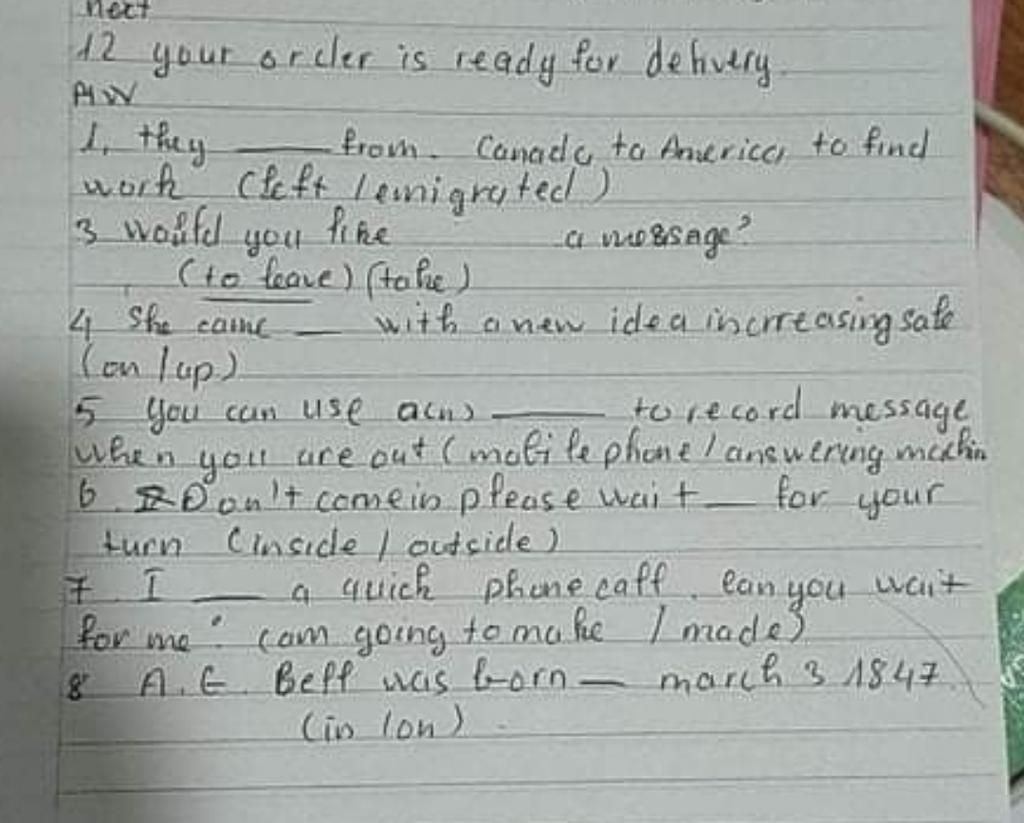 next
12 your order is ready for delivery.
HW
1. they ____ from. Canada to America to find
work (left / emigrated)
3 would you like a message?
(to leave) (take)
4 She came __ with a new idea incrreasing sale
(on / up)
5 You can use a(n) ____ to record message
when you are out (mobile phone / answering machin
6. Don't come in please wait __ for your
turn (inside / outside)
7. I ___ a quick phone call. Can you wait
for me? (am going to make / made)
8 A. G. Bell was born __ march 3 1847.
(in / on).